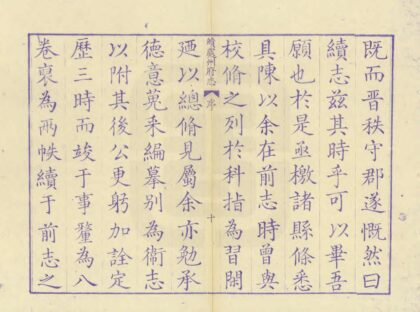 既而晋秩守郡遂慨然曰
續志兹其時乎可以畢吾
願也於是亟檄諸縣條悉
具陳以余在前志時曾與
校脩之列於科指為習閑
續處州府志
序
十
廼以總脩見屬余亦勉承
德意蒐采編摹别為衛志
以附其後公更躬加詮定
歷三時而竣于事釐為八
卷裒為兩帙續于前志之